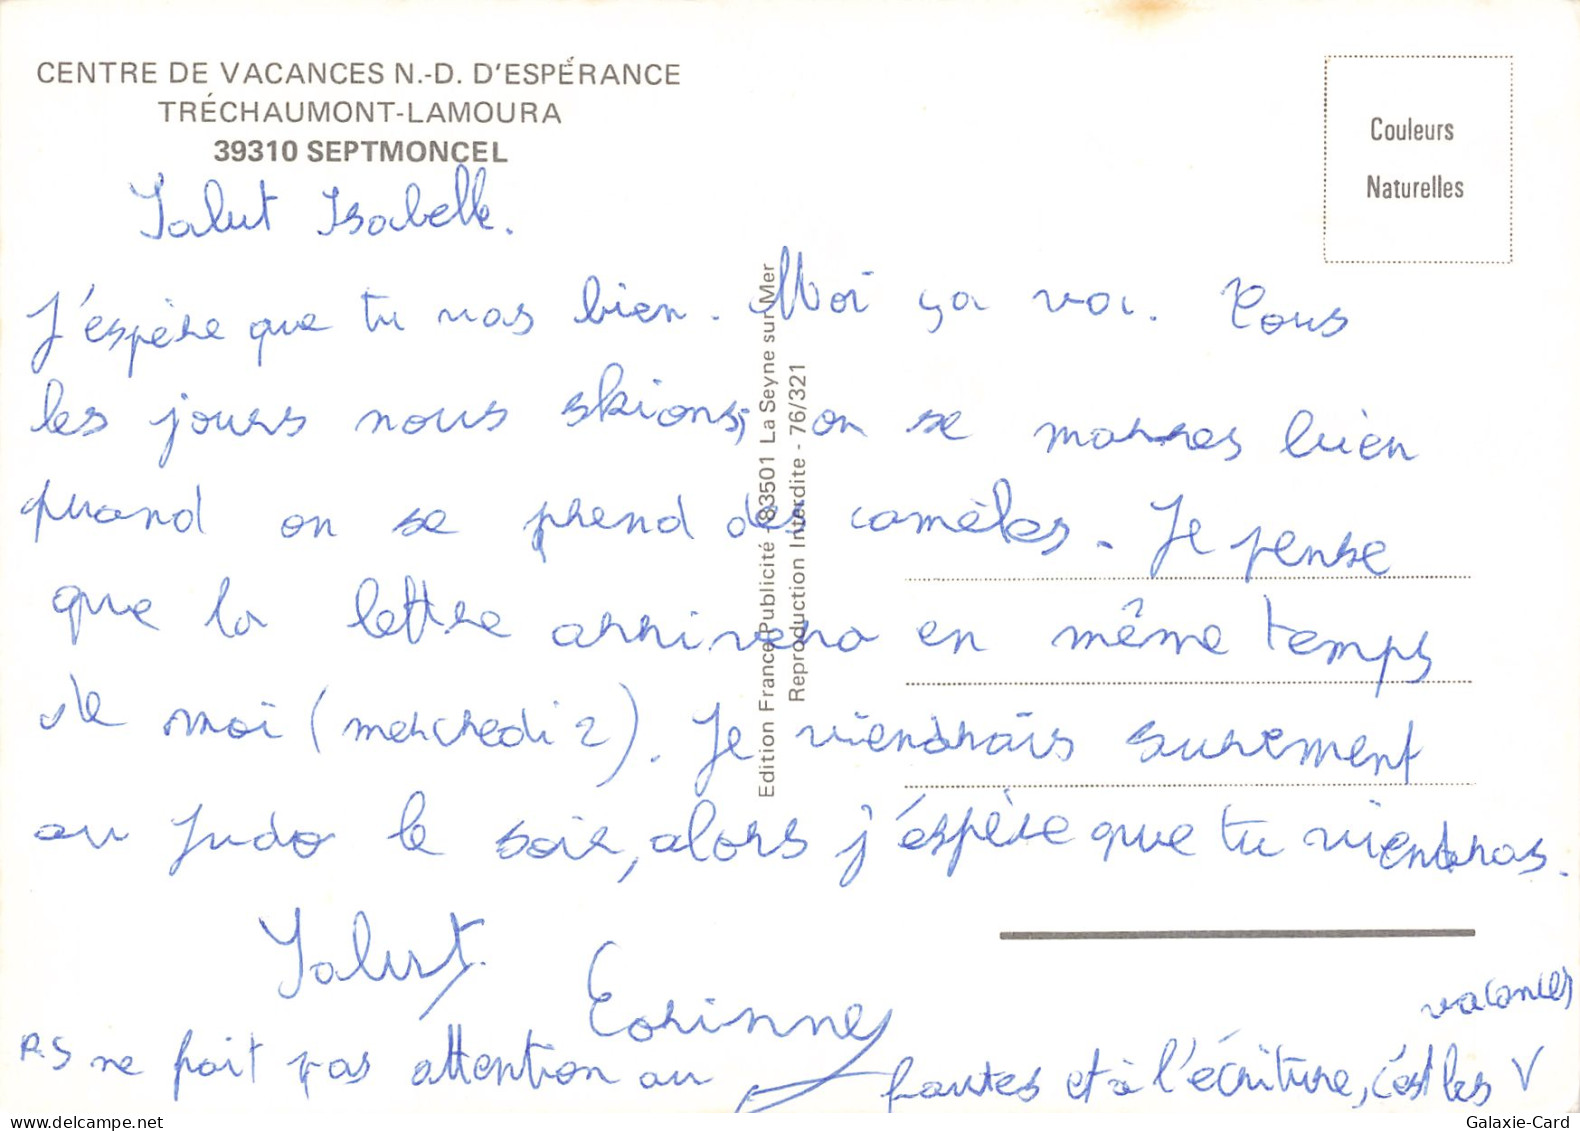 CENTRE DE VACANCES N.-D. D'ESPÉRANCE
TRÉCHAUMONT-LAMOURA
39310 SEPTMONCEL
Couleurs
Naturelles
Salut Isabelle.
J'espère que tu vas bien. Moi ça va. Tous
les jours nous skions, on se marres bien
quand on se prend des camèles. Je pense
que la lettre arrivera en même temps
de moi (mercredi 2). Je viendrais surement
au judo le soir, alors j'espère que tu viendras.
Salut.
Corinne
P.S ne fait pas attention au fautes et à l'écriture, c'est les V
vacances
Edition France Publicité - 83501 La Seyne sur Mer
Reproduction Interdite - 76/321
Galaxie-Card